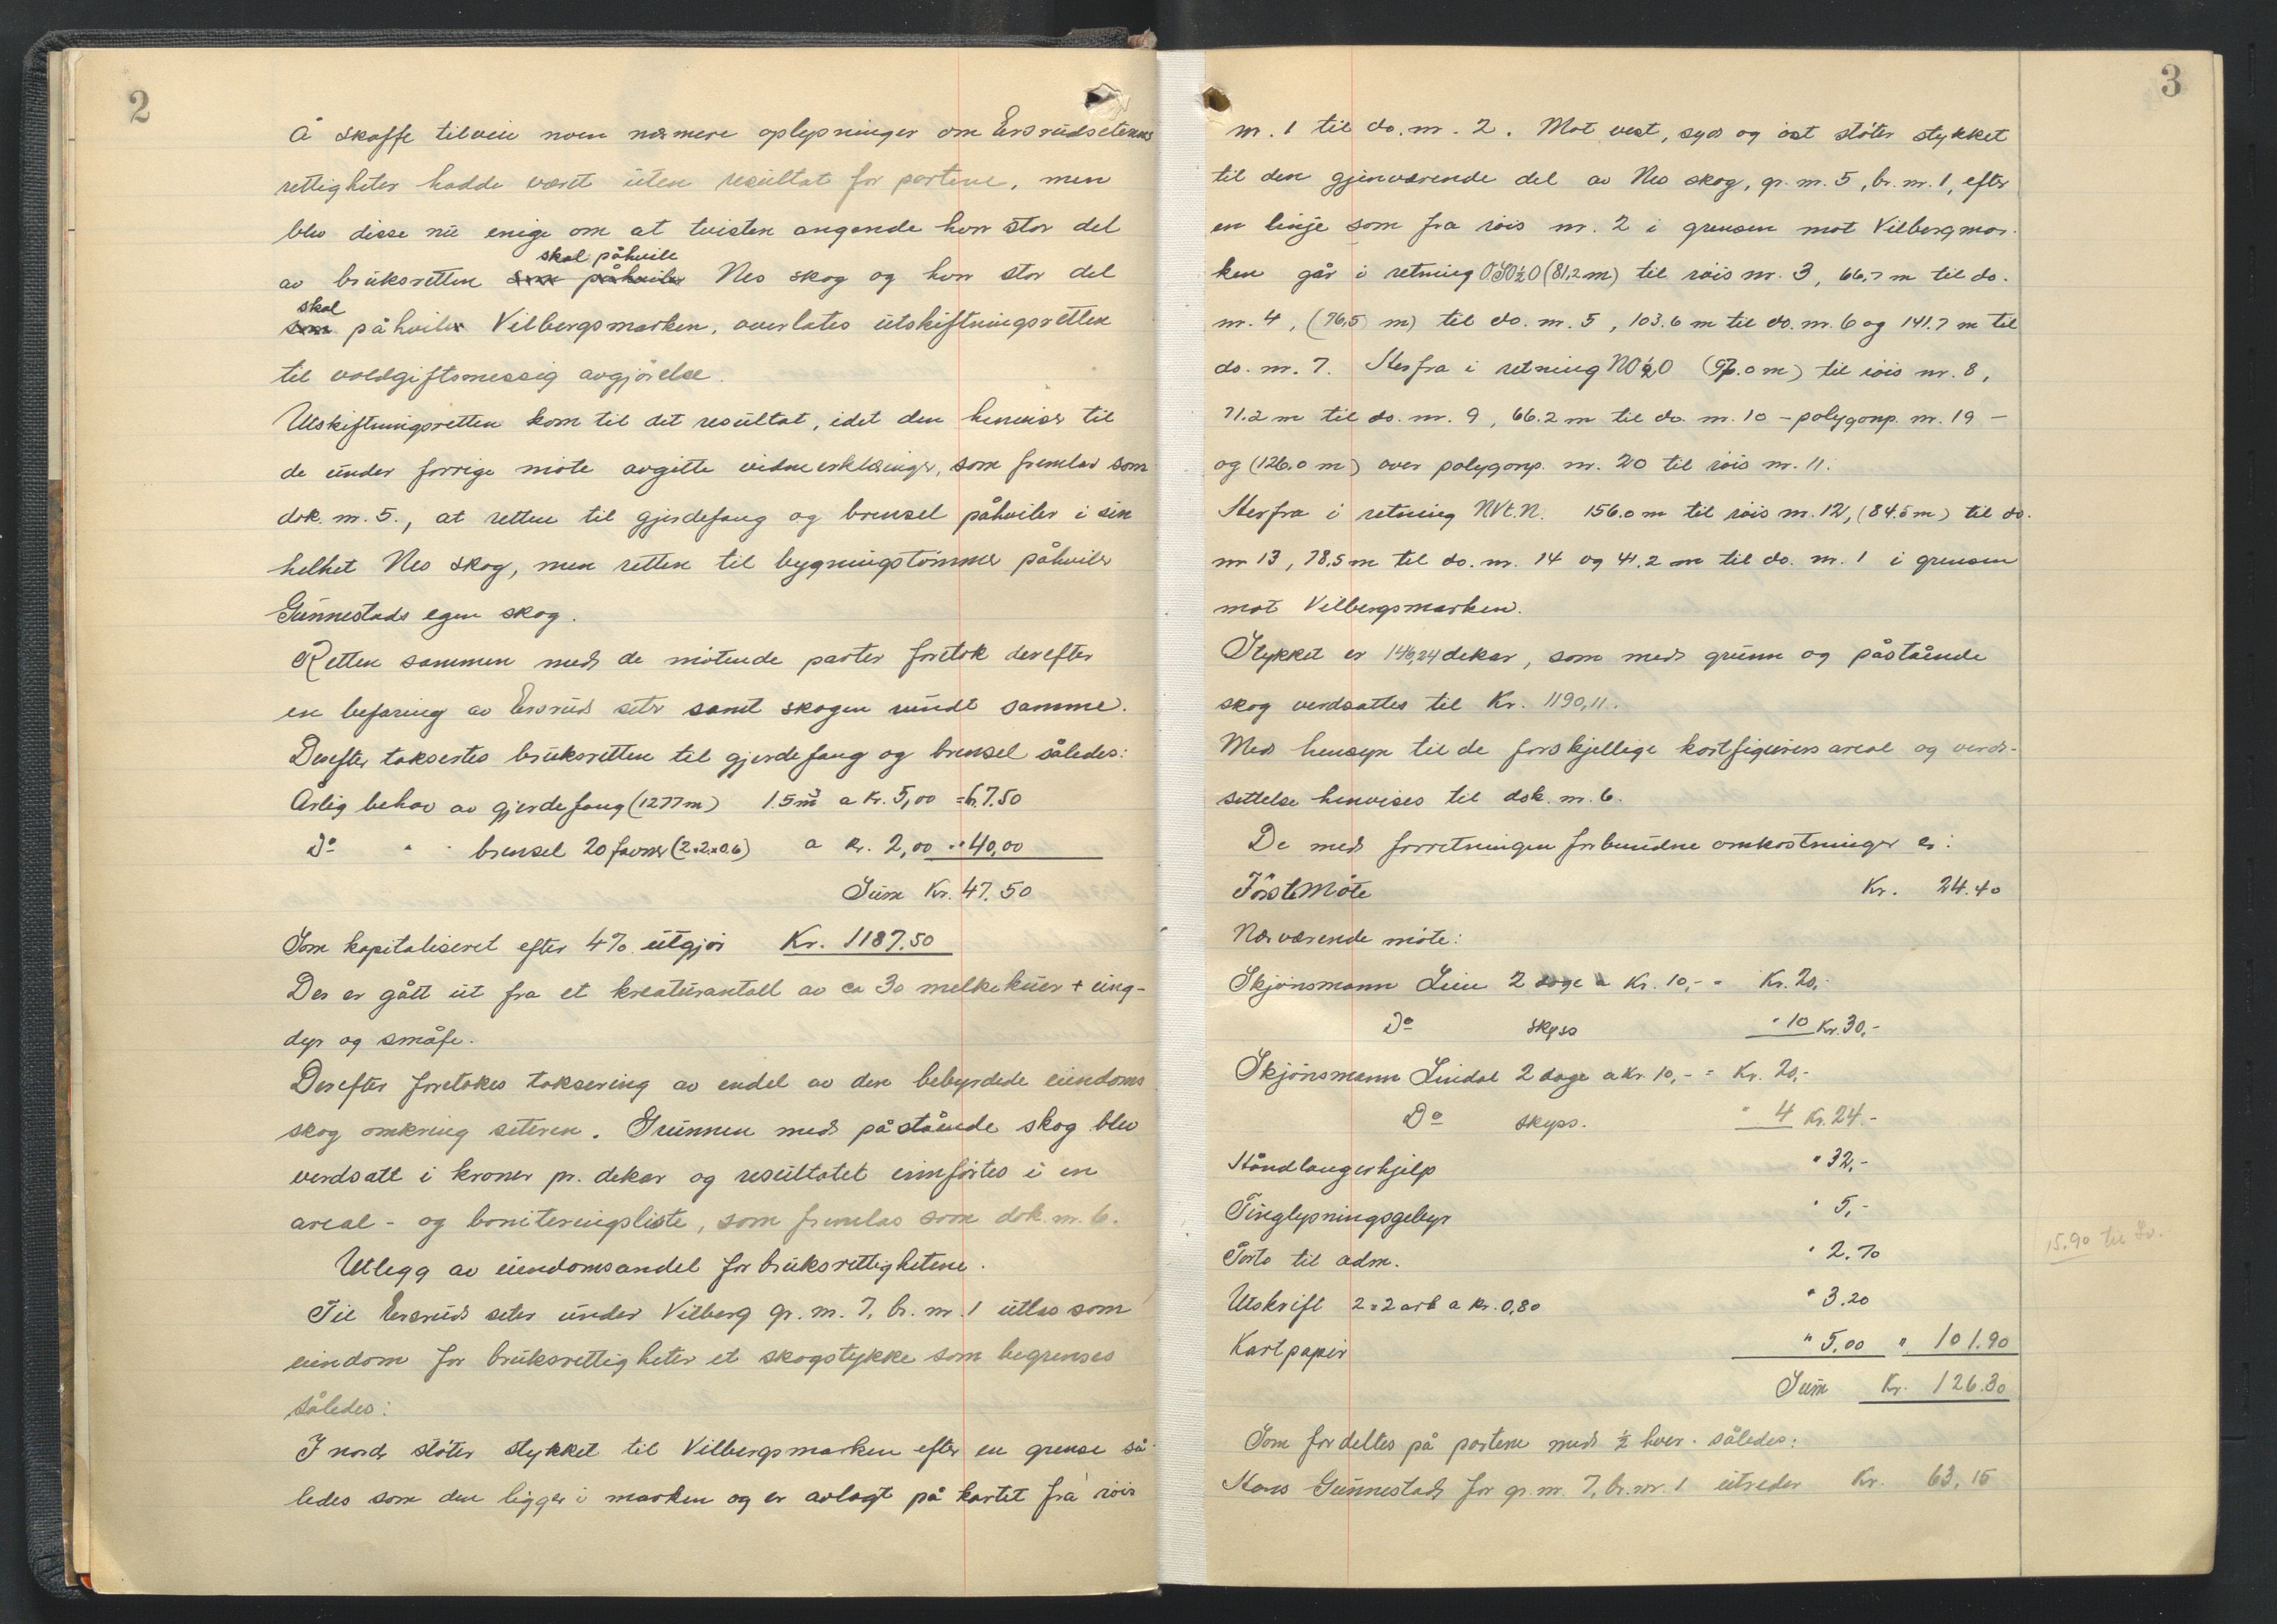 2
Å skaffe tilveie noen nærmere oplysninger om Ersrudseterens
rettigheter hadde været uten resultat for partene, men
blev disse nu enige om at tvisten angående hvor stor del
skal påhvile
av bruksretten som påhviler Nes skog og hvor stor del
skal
som påhviler Vilbergsmarken, overlates utskiftningsretten
til voldgiftsmessig avgjørelse.
Utskiftningsretten kom til det resultat, idet den henviser til
de under forrige møte avgitte vidneerklæringer, som fremlas som
dok. nr. 5., at retten til gjerdefang og brensel påhviler i sin
helhet Nes skog, men retten til bygningstømmer påhviler
Gunnestads egen skog.
Retten sammen med de møtende parter foretok derefter
en befaring av Ersrud seter samt skogen rundt samme.
Derefter taksertes bruksretten til gjerdefang og brensel således:
Årlig behov av gjerdefang (1277 m) 1.5 m³ a kr. 5,00 = kr. 7.50
Do " " brensel 20 favner (2×2×0.6) a kr. 2,00 = " 40,00
Sum Kr. 47.50
Som kapitaliseret efter 4% utgjør Kr. 1187.50
Der er gått ut fra et kreaturantall av ca 30 melkekuer + ung-
dyr og småfe.
Derefter foretokes taksering av endel av den bebyrdede eiendoms
skog omkring seteren. Grunnen med påstående skog blev
verdsatt i kroner pr. dekar og resultatet innførtes i en
areal- og boniteringsliste, som fremlas som dok. nr. 6.
Utlegg av eiendomsandel for bruksrettighetene.
Til Ersrud seter under Vilberg gr. nr. 7, br. nr. 1 utlas som
eiendom for bruksrettigheter et skogstykke som begrenses
således:
I nord støter stykket til Vilbergsmarken efter en grense så-
ledes som den ligger i marken og er avlagt på kartet fra røis
3
nr. 1 til do. nr. 2. Mot vest, syd og øst støter stykket
til den gjenværende del av Nes skog, gr. nr. 5, br. nr. 1, efter
en linje som fra røis nr. 2 i grensen mot Vilbergmar-
ken går i retning OSO½O (81,2 m) til røis nr. 3, 66,7 m til do.
nr. 4, (76,5 m) til do. nr. 5, 103.6 m til do. nr. 6 og 141.7 m til
do. nr. 7. Herfra i retning NO½O (97.0 m) til røis nr. 8,
71.2 m til do. nr. 9, 66.2 m til do. nr. 10 - polygonp. nr. 19 -
og (126.0 m) over polygonp. nr. 20 til røis nr. 11.
Herfra i retning NVt.N. 156.0 m til røis nr. 12, (84.5 m) til do.
nr 13, 78.5 m til do. nr. 14 og 41.2 m til do. nr. 1 i grensen
mot Vilbergsmarken.
Stykket er 146,24 dekar, som med grunn og påstående
skog verdsattes til Kr. 1190,11.
Med hensyn til de forskjellige kartfigurers areal og verd-
settelse henvises til dok. nr. 6.
De med forretningen forbundne omkostninger er:
Første Møte Kr. 24.40
Nærværende møte:
Skjønsmann Lein 2 dage a Kr. 10,- = Kr. 20,-
Do skyss " 10 Kr. 30,-
Skjønsmann Lindal 2 dage a Kr. 10,- = Kr. 20,-
Do skyss. " 4 Kr. 24.-
Håndlangerhjelp " 32,-
Tinglysningsgebyr " 5,-
Porto til adm. " 2.70
Utskrift 2×2 ark a kr. 0,80 " 3.20
Kartpapir " 5,00 " 101.90
15.90 til
Sum Kr. 126.30
Som fordeltes på partene med ½ hver. således:
Hans Gunnestad for gr. nr. 7, br. nr. 1 utreder Kr. 63,15